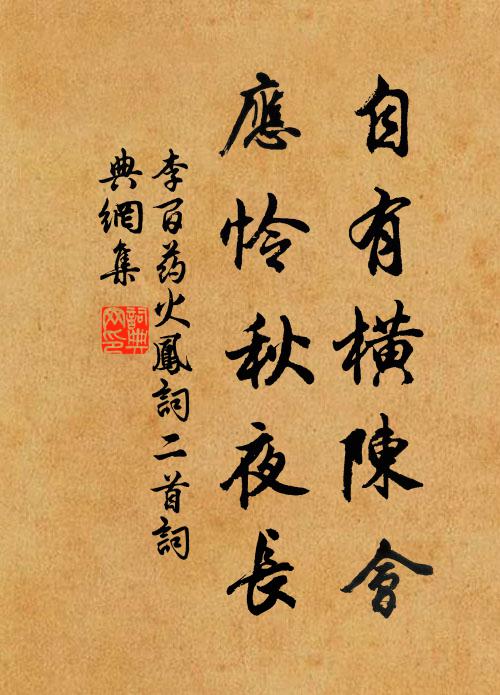 自有橫陳會
應怜秋夜長
李百药火鳳詞二首詞
典網集
詞典網印